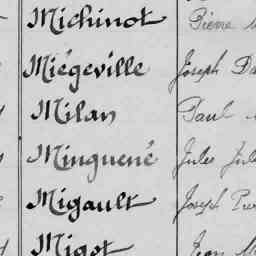 Michinot Pierre
Miégeville Joseph
Milan Paul
Minguené Jules
Migault Joseph
Migot Jean